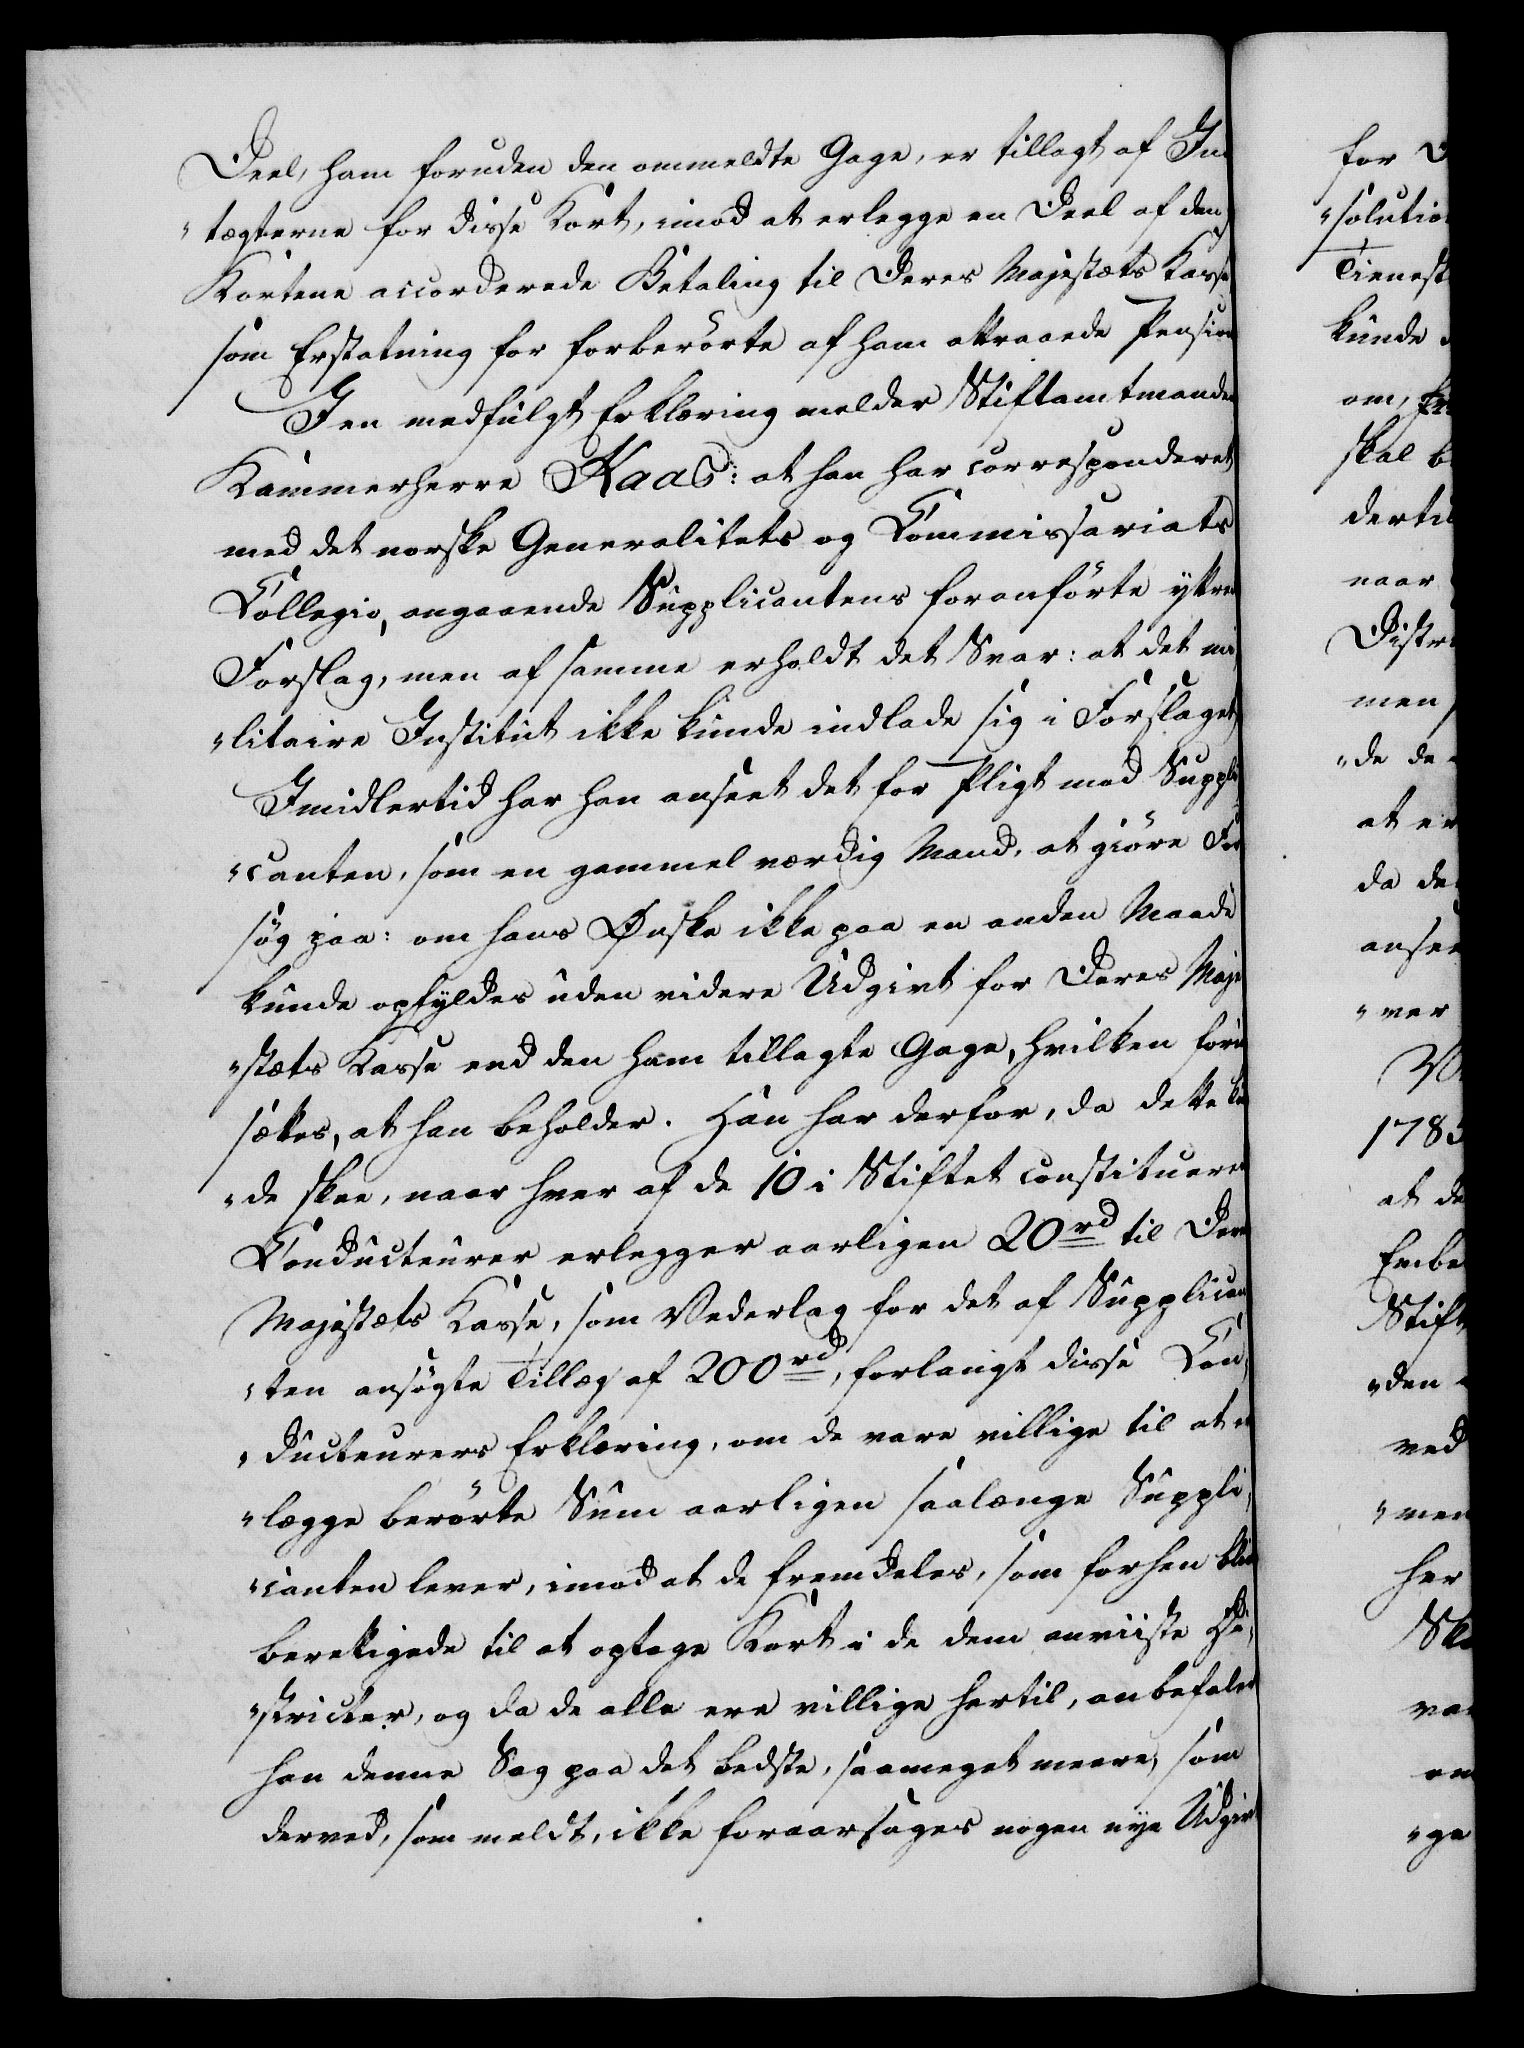 Deel, ham foruden den ommeldte Gage, er tillagt af In
"tægterne for disse Kort, imod at erlegge en Deel af den
Kortene accorderede Betaling til Deres Majestæts Kasse
som Erstatning for forberörte af ham attraaede Pension
I en medfulgt Erklæring melder Stiftamtmanden
Kammerherre Kaas: at han har correspónderet
med det norske Generalitets og Commissariats
Collegio, angaaende Supplicantens foranförte yttrede
Forslag, men af samme erholdt det Svar: at det mi
"litaire Institut ikke kunde indlade sig i Forslaget,
Imidlertid har han anseet det for Pligt mod Suppli
"canten, som en gammel værdig Mand, at giöre For
søg paa: om hans Ønske ikke paa en anden Maade
kunde opfyldes uden videre Udgivt for Deres Maje
"stæts Kasse end den ham tillagte Gage, hvilken foru
sættes, at han beholder. Han har derfor, da dette kun
"de skee, naar hver af de 10 i Stiftet constituerede
Conducteurer erlegger aarligen 20 rd til Deres
Majestæts Kasse, som Vederlag for det af Supplican
"ten ansøgte Tillæg af 200 rd, forlangt disse Con,
"ducteurers Erklæring, om de vare villige til at er
"lægge berörte Sum aarligen saalænge Suppli,
"canten lever, imod at de fremdeles, som forhen bliv
berettigede til at optage Kort i de dem anviiste Di,
"stricter, og da de alle ere villige hertil, anbefaler
han denne Sag paa det bedste, saameget meere, som
derved, som meldt, ikke foraarsages nogen nye Udgivt
for D
"solution
Tienest
kunde
om, fr
skal b
dertil
naar
Distr
men
"de de
at er
da de
ansee
"ver
1785
at de
Embe
Stift
"den
ved
"men
her
Sk
va
"ge